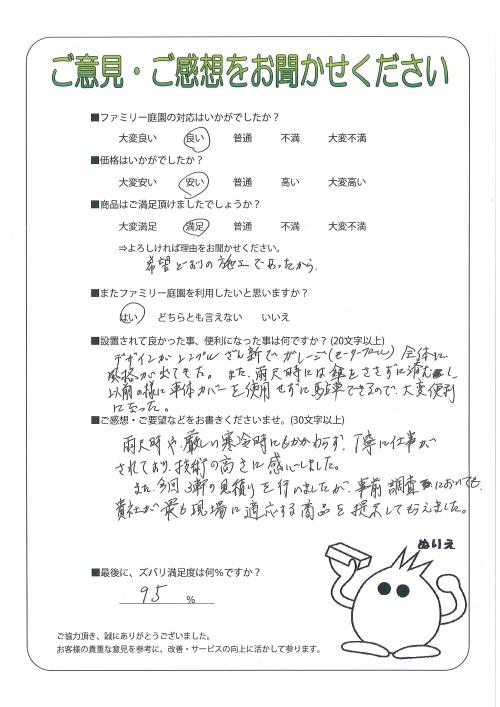 ご意見・ご感想をお聞かせください
■ファミリー庭園の対応はいかがでしたか？
大変良い 良い 普通 不満 大変不満
■価格はいかがでしたか？
大変安い 安い 普通 高い 大変高い
■商品はご満足頂けましたでしょうか？
大変満足 満足 普通 不満 大変不満
⇒よろしければ理由をお聞かせください。
希望どおりの施工であったから.
■またファミリー庭園を利用したいと思いますか？
はい どちらとも言えない いいえ
■設置されて良かった事、便利になった事は何ですか？(20文字以上)
デザインがシンプル ざん新で ガレージ( 全体に
風格が出てきた。また、雨天時には傘をささずに済むし
以前の様に車体カバーを使用せずに駐車できるので、大変便利
になった。
■ご感想・ご要望などをお書きくださいませ。(30文字以上)
雨天時や、厳しい寒冷時にもかかわらず、丁寧に仕事が
されており、技術の高さに感心しました。
また、今回 3軒の見積りを行いましたが、事前調査においても、
貴社が最も現場に適応する商品を提示してもらえました。
ぬりえ
■最後に、ズバリ満足度は何%ですか？
95 %
ご協力頂き、誠にありがとうございました。
お客様の貴重な意見を参考に、改善・サービスの向上に活かして参ります。